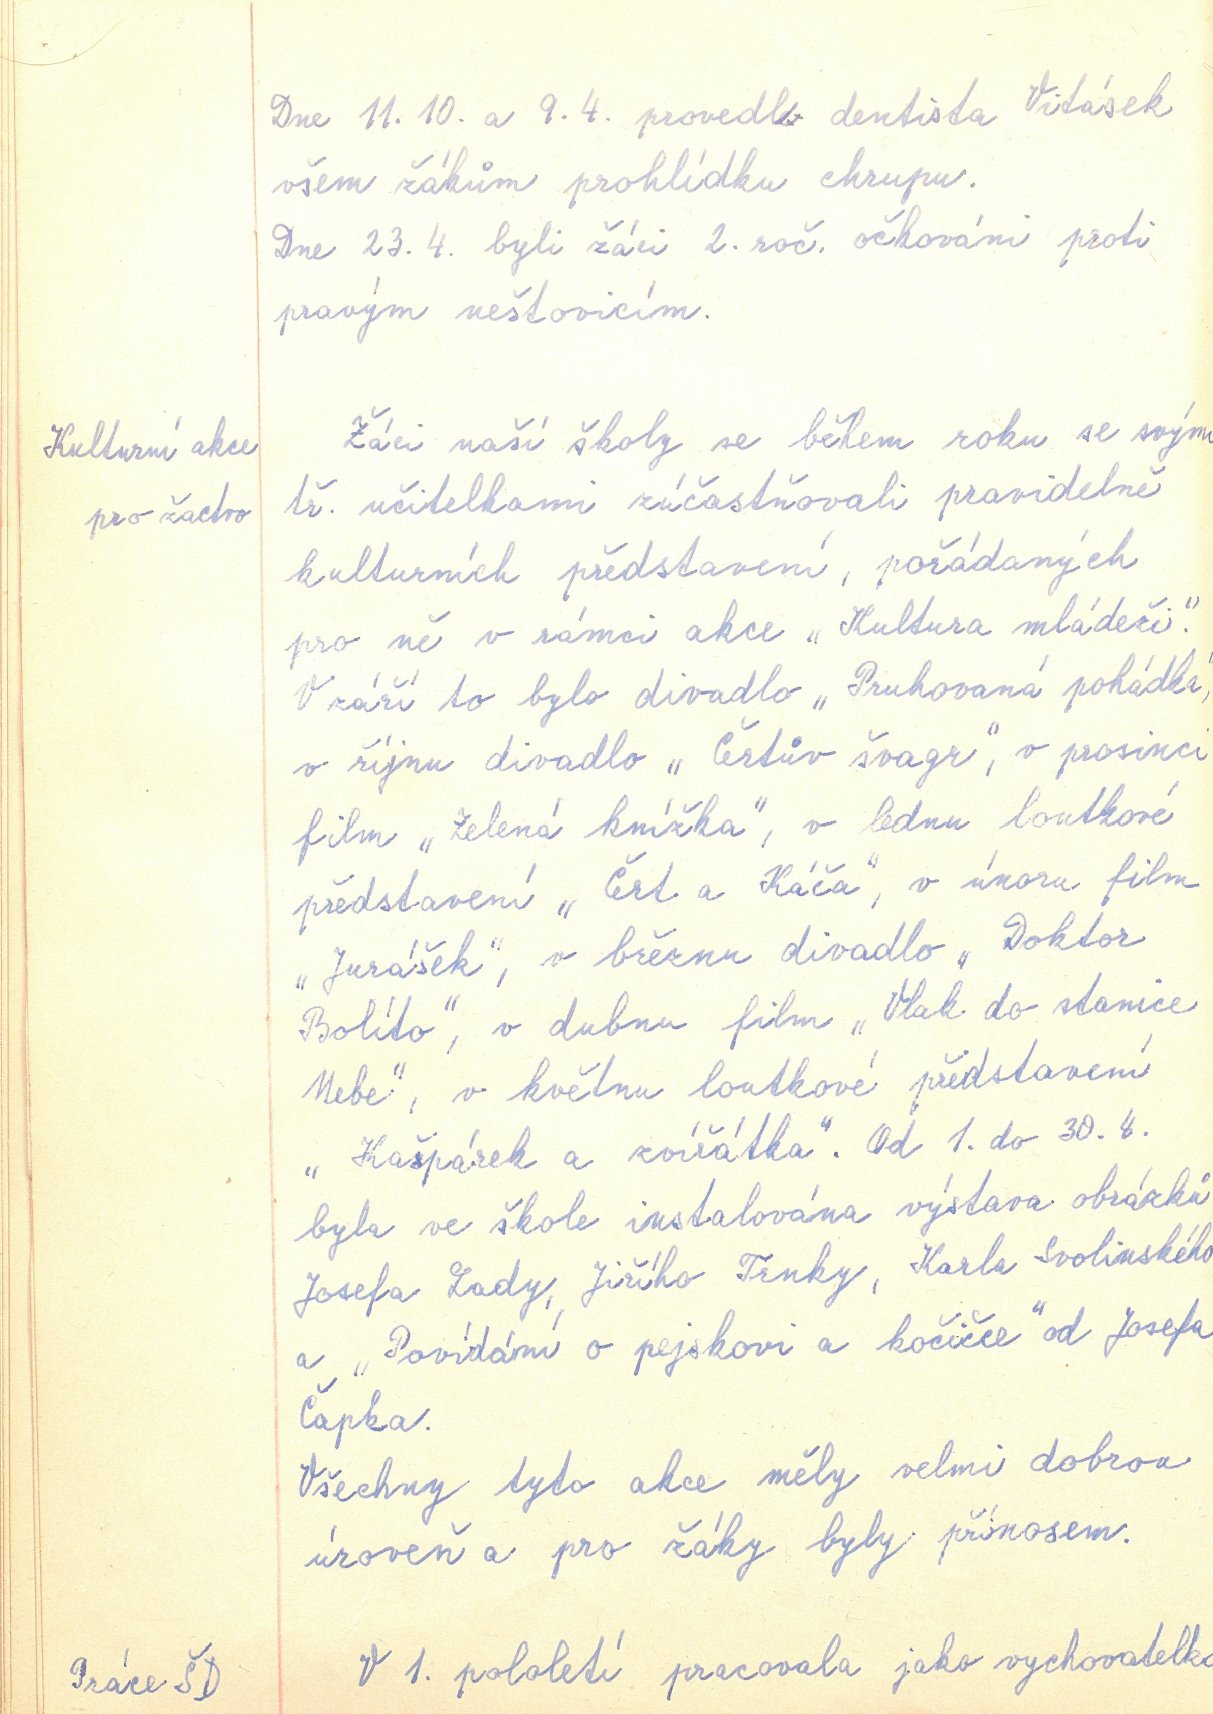 Dne 11. 10. a 9. 4. provedl dentista Vitásek
všem žákům prohlídku chrupu.
Dne 23. 4. byli žáci 2. roč. očkováni proti
pravým neštovicím.
Kulturní akce
pro žactvo
Žáci naší školy se během roku se svými
tř. učitelkami zúčastňovali pravidelně
kulturních představení, pořádaných
pro ně v rámci akce „Kultura mládeži".
V září to bylo divadlo „Pruhovaná pohádka",
v říjnu divadlo „Čertův švagr", v prosinci
film „Zelená knížka", v lednu loutkové
představení „Čert a Káča", v únoru film
„Jurášek", v březnu divadlo „Doktor
Bolíto", v dubnu film „Vlak do stanice
Nebe", v květnu loutkové představení
„Kašpárek a zvířátka". Od 1. do 30. 4.
byla ve škole instalována výstava obrázků
Josefa Lady, Jiřího Trnky, Karla Svolinského
a „Povídání o pejskovi a kočičce" od Josefa
Čapka.
Všechny tyto akce měly velmi dobrou
úroveň a pro žáky byly přínosem.
Práce ŠD
V 1. pololetí pracovala jako vychovatelka